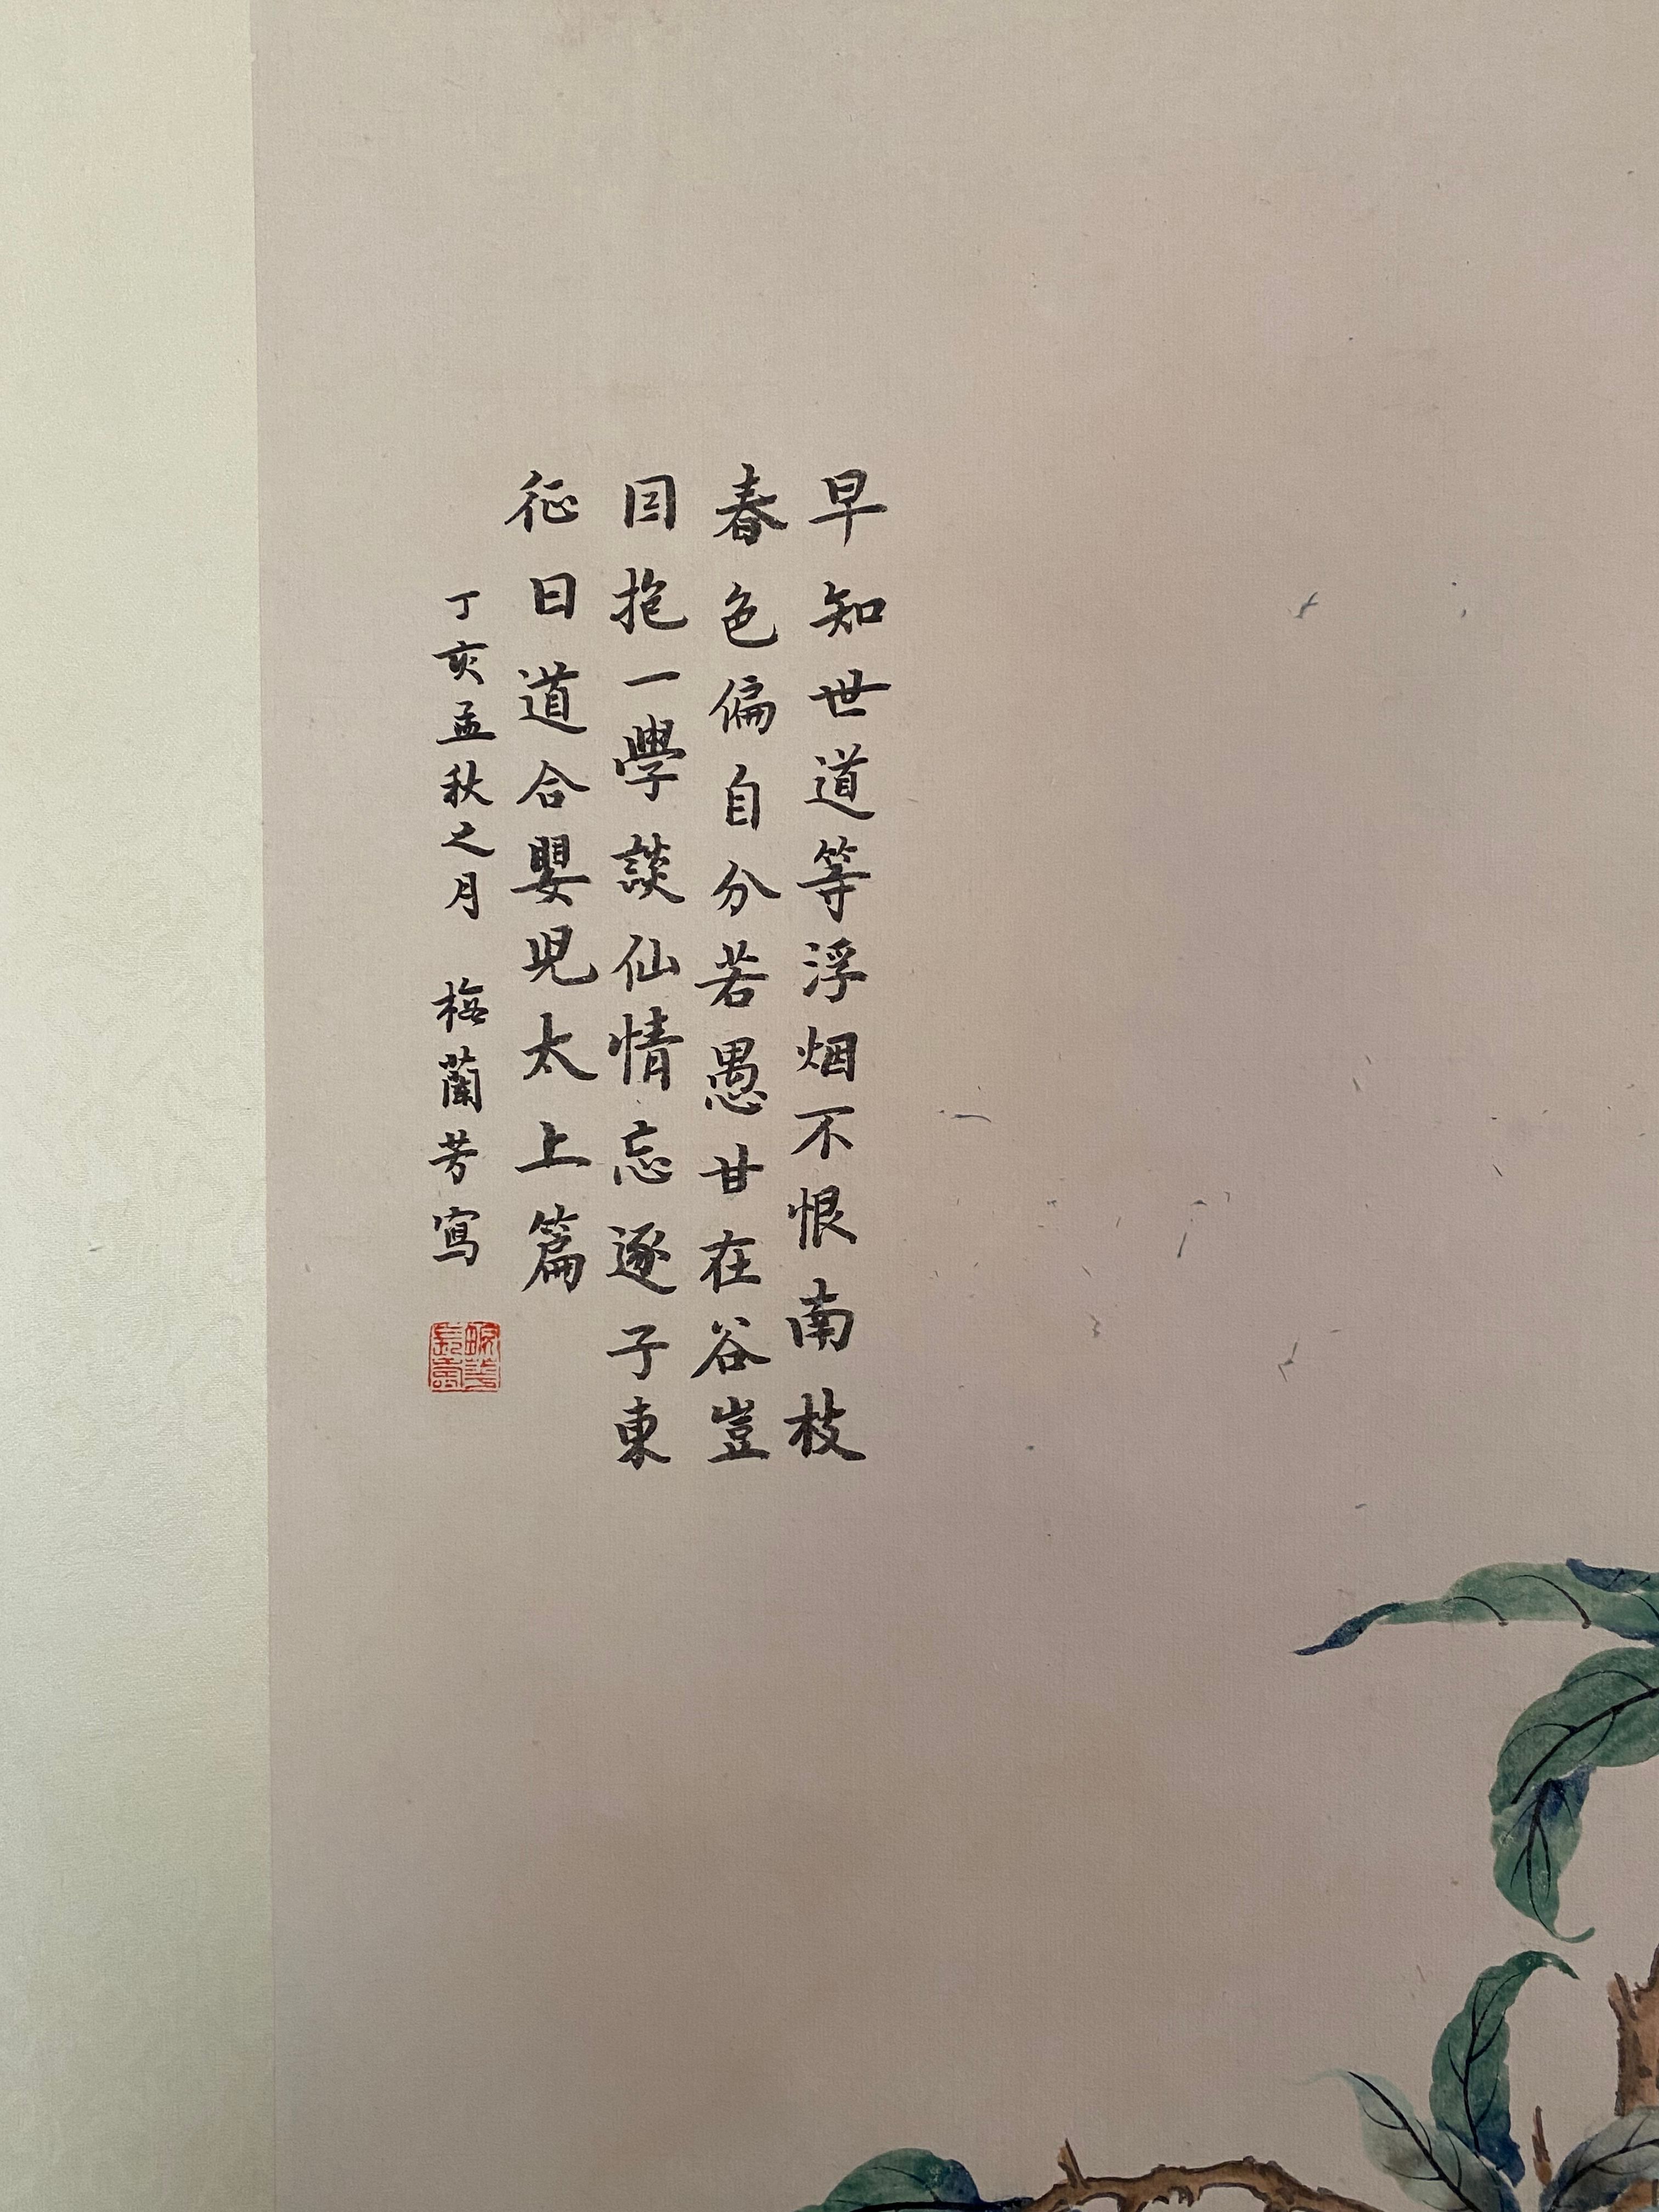 早知世道等浮烟不恨南枝
春色偏自分若愚甘在谷豈
因抱一學談仙情忘逐子東
征日道合嬰児太上篇
丁亥孟秋之月 梅蘭芳寫